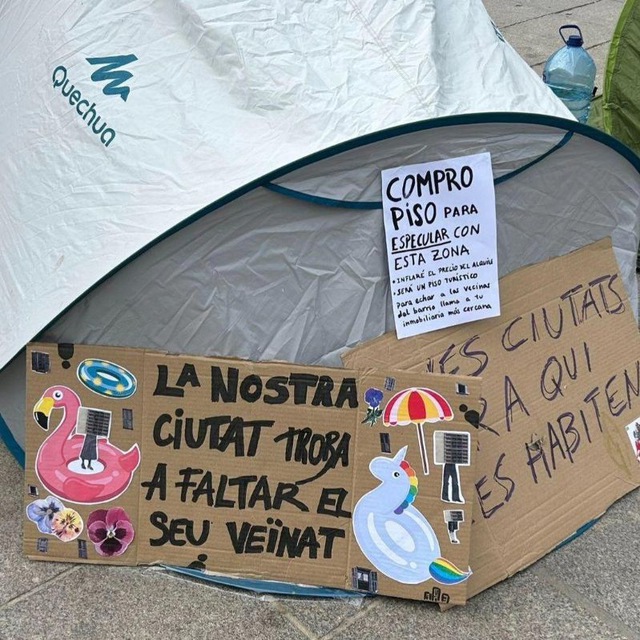 Quechua
COMPRO
PISO PARA
ESPECULAR CON
ESTA ZONA
• INFLARÉ EL PRECIO DEL ALQUILER
• SERÁ UN PISO TURÍSTICO
para echar a las vecinas
del barrio llama a tu
inmobiliaria más cercana
LA NOSTRA
CIUTAT TROBA
A FALTAR EL
SEU VEÏNAT
CIUTATS
A QUI
ES HABITEN